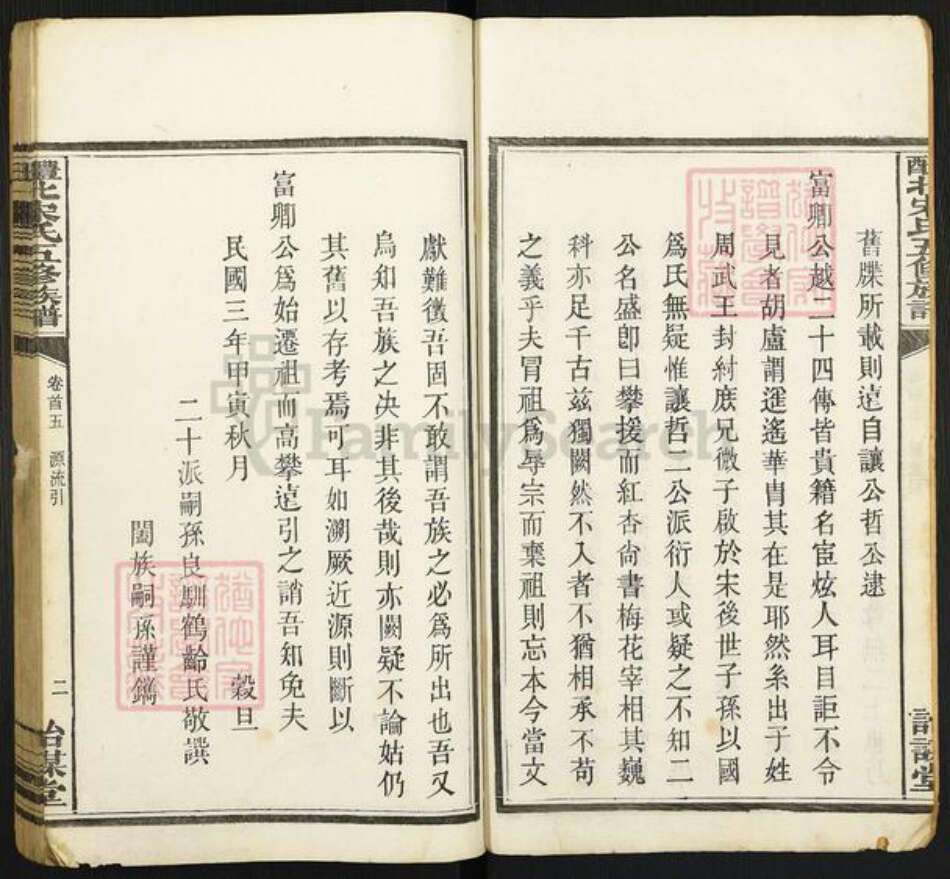 舊牒所載則遠自讓公哲公逮
富卿公越二十四傳皆貴籍名宦炫人耳目詎不令
見者胡盧謂遥遙華胄其在是耶然系出子姓
周武王封紂庶兄微子啟於宋後世子孫以國
爲氏無疑惟讓哲二公派衍人或疑之不知二
公名盛卽曰攀援而紅杏尙書梅花宰相其巍
科亦足千古兹獨闕然不入者不猶相承不苟
之義乎夫冒祖爲辱宗而棄祖則忘本今當文
獻難徵吾固不敢謂吾族之必爲所出也吾又
烏知吾族之决非其後哉則亦闕疑不論姑仍
其舊以存考焉可耳如溯厥近源則斷以
富卿公爲始遷祖而高攀遠引之誚吾知免夫
民國三年甲寅秋月 穀旦
二十派嗣孫良馴鶴齡氏敬譔
闔族嗣孫謹鐫
北宋氏五修族譜
卷首五 源流引
二
詒謀堂
FamilySearch